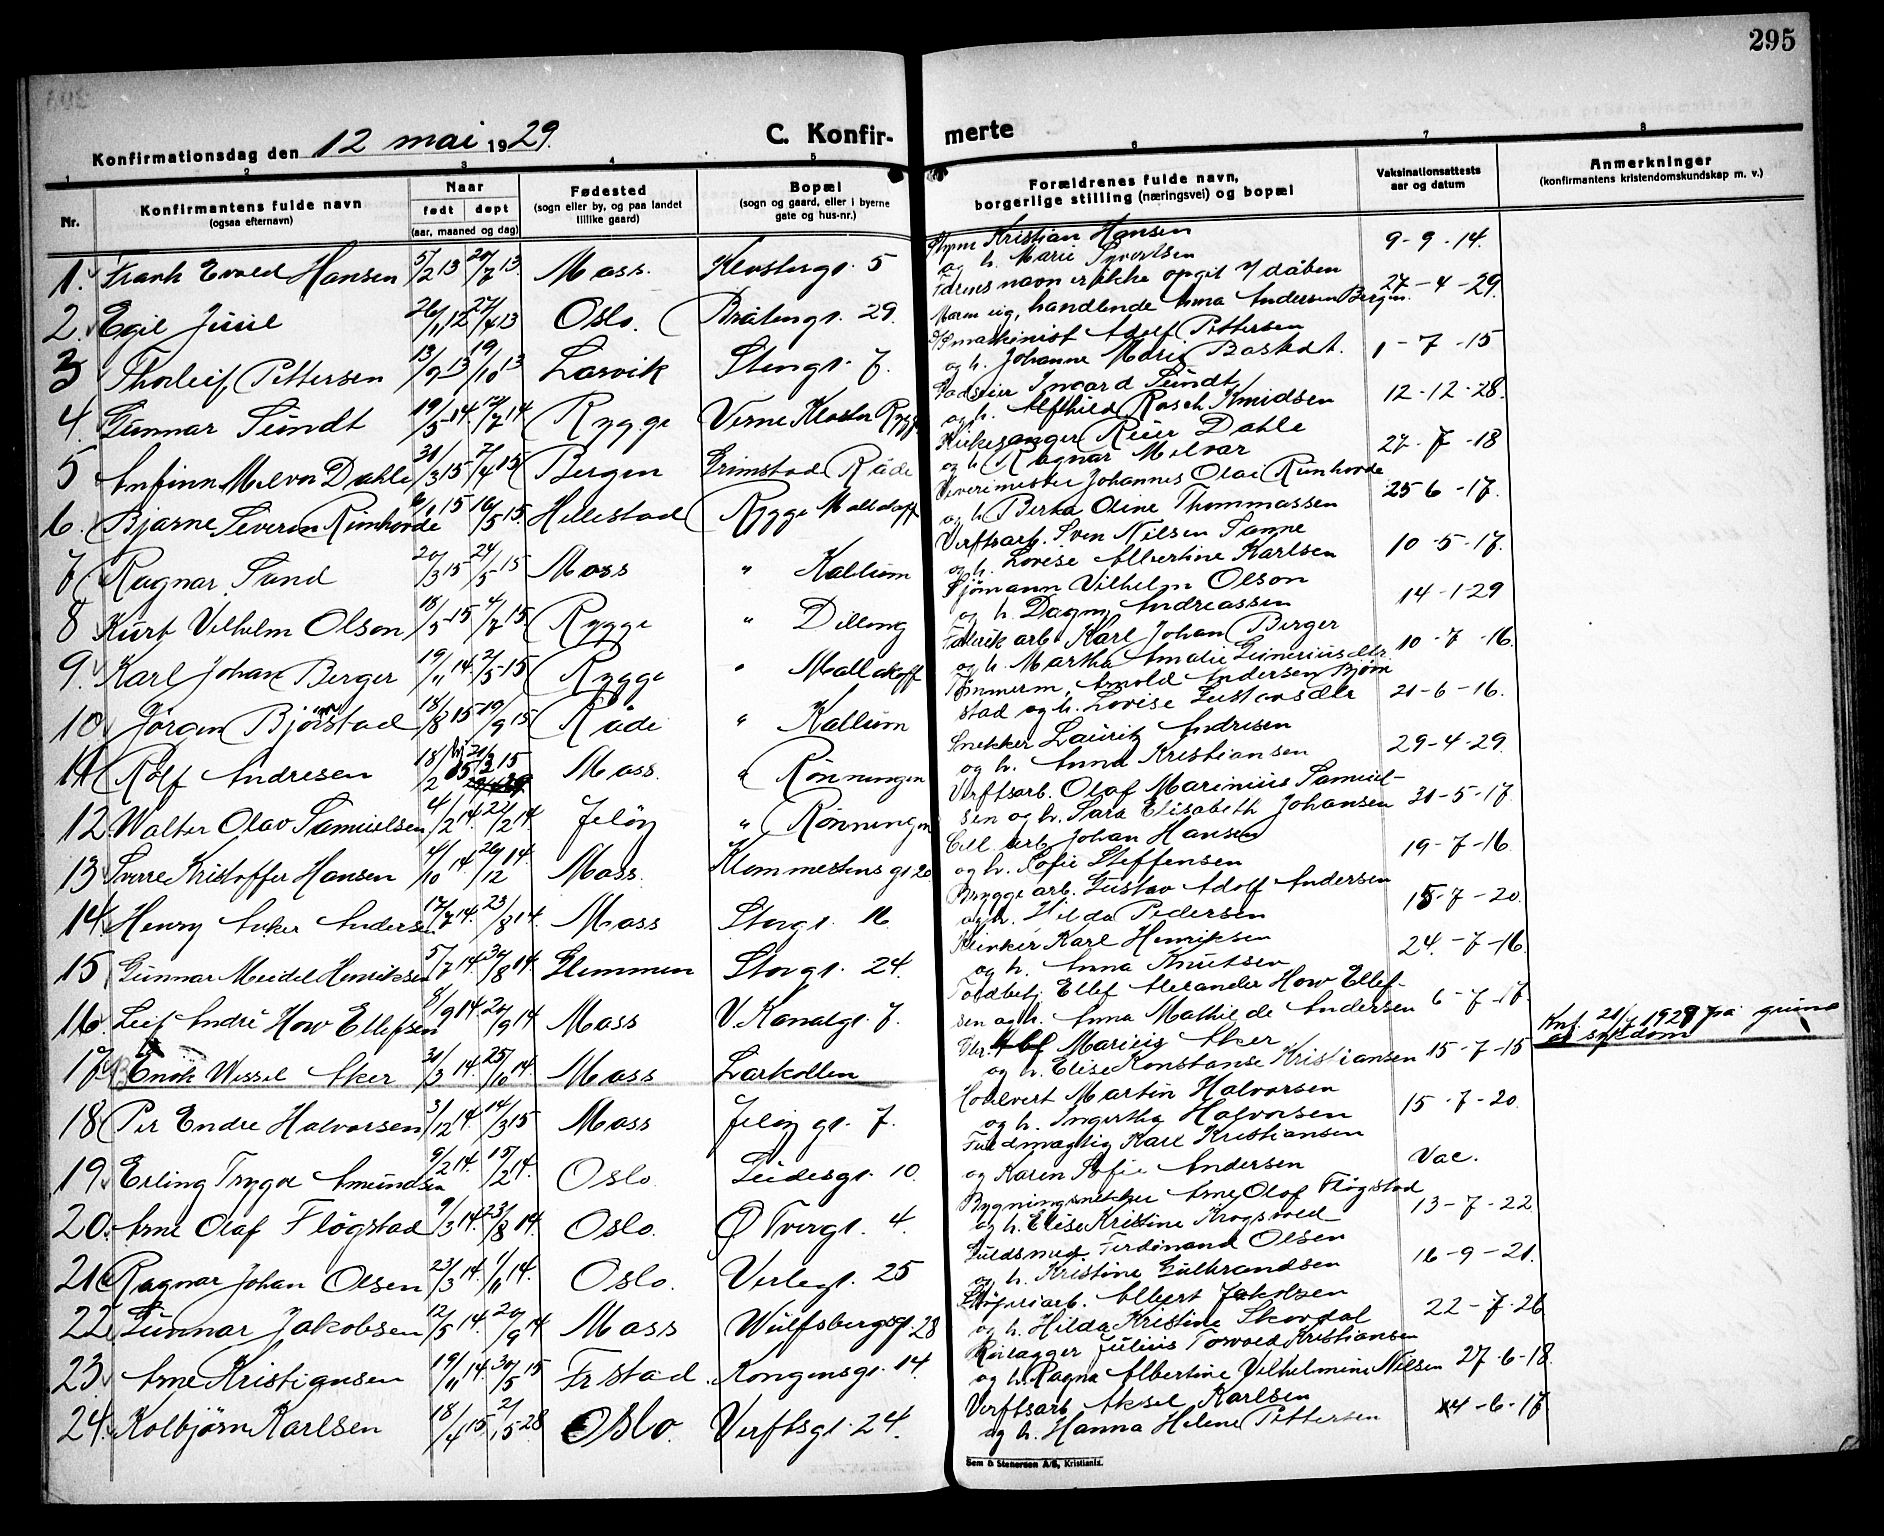 295
Konfirmationsdag den 12 mai 1929.
C. Konfirmerte
1 2 3 4 5 6 7 8
Nr.
Konfirmantens fulde navn
(ogsaa efternavn)
Naar
født døpt
(aar, maaned og dag)
Fødested
(sogn eller by, og paa landet
tillike gaard)
Bopæl
(sogn og gaard, eller i byerne
gate og hus-nr.)
Forældrenes fulde navn,
borgerlige stilling (næringsvei) og bopæl
Vaksinationsattests
aar og datum
Anmerkninger
(konfirmantens kristendomskundskap m. v.)
1. Frank Evald Hansen 5/2 13 20/7 13 Moss. Klostergt. 5 Kristian Hansen 9-9-14.
og h. Marie Syvertsen
2. Egil Juul 26/11 12 27/4 13 Oslo. Bråtengt. 29. Farens navn er ikke opgit v/ dåben 27-4-29.
Moren ug, handlende Anna Andersen Bergen.
3 Thorleif Pettersen 13/9 13 19/10 13 Larvik Stengt. 7. maskinist Adolf Pettersen 1-7-15
og h. Johanne Marie Bastedt.
4. Gunnar Sundt 19/5 14. 12/7 14 Rygge Verne Kloster Rygge Godseier Ingard Sundt 12-12-28.
og h. Alfhild Rosch Knudsen
5 Arnfinn Melvær Dahle 31/3 15 21/4 15 Bergen Grimstad Råde Kirkesanger Reier Dahle 27-7-18
og h. Ragnar Melvær
6. Bjarne Severin Rønhovde 6/1 15 16/5 15. Hillestad Rygge Malakoff Vevermester Johannes Olai Rønhovde 25 6-17.
og h. Berta Oline Thommassen
7 Ragnar Sand 20/3 15 24/5 15 Moss " Kallum Verftsarb. Sven Nilsen Sanne 10-5-17.
og h. Lovise Albertine Karlsen
8 Kurt Vilhelm Olson 18/5 15 4/7 15 Rygge " Dilling Sjømann Vilhelm Olson 14-1-29
og h. Dagny Andreassen
9. Karl Johan Berger 19/11 14. 2/5 15 Rygge " Mallakoff Fabrik arb. Karl Johan Berger 10-7-16.
og h. Martha Amalie
10 Jørgen Bjørnstad 18/8 15 19/9 15 Råde " Kallum Tømmerm. Arnold Andersen Bjørn
stad og h. Lovise Gustavsdtr 21-6-16.
11 Rolf Andresen 18/2 15 Moss. " Rønningen Snekker Lauritz Andresen 29-4-29.
og h. Anna Kristiansen
12. Walter Olav Samuelsen 4/2 14. 22/2 14. Jeløy " Rønningen Verftsarb. Olaf Marinius Samuel-
sen og h. Sara Elisabeth Johansen 31-5-17.
13 Sverre Kristoffer Hansen 4/10 14. 26/12 14. Moss. Klommestens gt 20 Cell. arb Johan Hansen 19-7-16
og h. Sofie Steffensen
14. Henry Anker Andersen 17/7 14. 23/8 14. Moss Storgt. 16 Brygge arb. Gustav Adolf Andersen 15-7-20.
og h. Hilda Pedersen
15 Gunnar Meidel Henriksen 5/7 14. 30/8 14. Glemmen Storgt. 24. Karl Henriksen 24.-7-16.
og h. Anna Knutsen
16. Leif André How Ellefsen 8/9 14. 20/9 14 Moss V. Kanalgt. 7. Toldbetj. Ellef Alexander How Ellef-
sen og h. Anna Mathilde Andersen 6-7-17.
17 Enok Wessel Aker 31/3 14. 25/10 14. Moss Larkollen Marius Aker 15-7-15 Knf. 21/ 1928 på grunn
og h. Elise Konstanse Kristiansen av sykdom
18 Per Endre Halvorsen 3/12 14. 14/3 15 Moss Jeløy gt. 7. Martin Halvorsen 15-7-20.
og h. Ingertha Halvorsen
19. Erling Trygve Amundsen 9/2 14. 15/2 14. Oslo. Ludesgt. 10. Fuldmægtig Karl Kristiansen Vac.
og Karen Sofie Andersen
20. Arne Olaf Fløgstad 9/3 14. 23/8 14. Oslo. Ø Tvergt. 4. Bygningssnekker Arne Olaf Fløgstad 13-7-22
og h. Elise Kristine Krogsvold
21. Ragnar Johan Olsen 23/3 14. 1/11 14. Oslo. Verlegt. 25 Guldsmed Ferdinand Olsen 16-9-21.
og h. Kristine Gulbrandsen
22 Gunnar Jakobsen 12/5 14. 20/9 14 Moss Wulfsbergsgt. 28 Albert Jakobsen 22-7-26
og h. Hilda Kristine Skovdal
23. Arne Kristiansen 19/11 14. 30/5 15 Frstad. Kongensgt. 14. Rørlægger Julius Torvald Kristiansen
og h. Ragna Albertine Vilhelmine Nilsen 27-6-18.
24. Kolbjørn Karlsen 18/4 15 2/5-28 Oslo. Verftsgt. 24. Verftsarb Aksel Karlsen 4-6-17
og h. Hanna Helene Pettersen
Sem & Stenersen A/S, Kristiania.